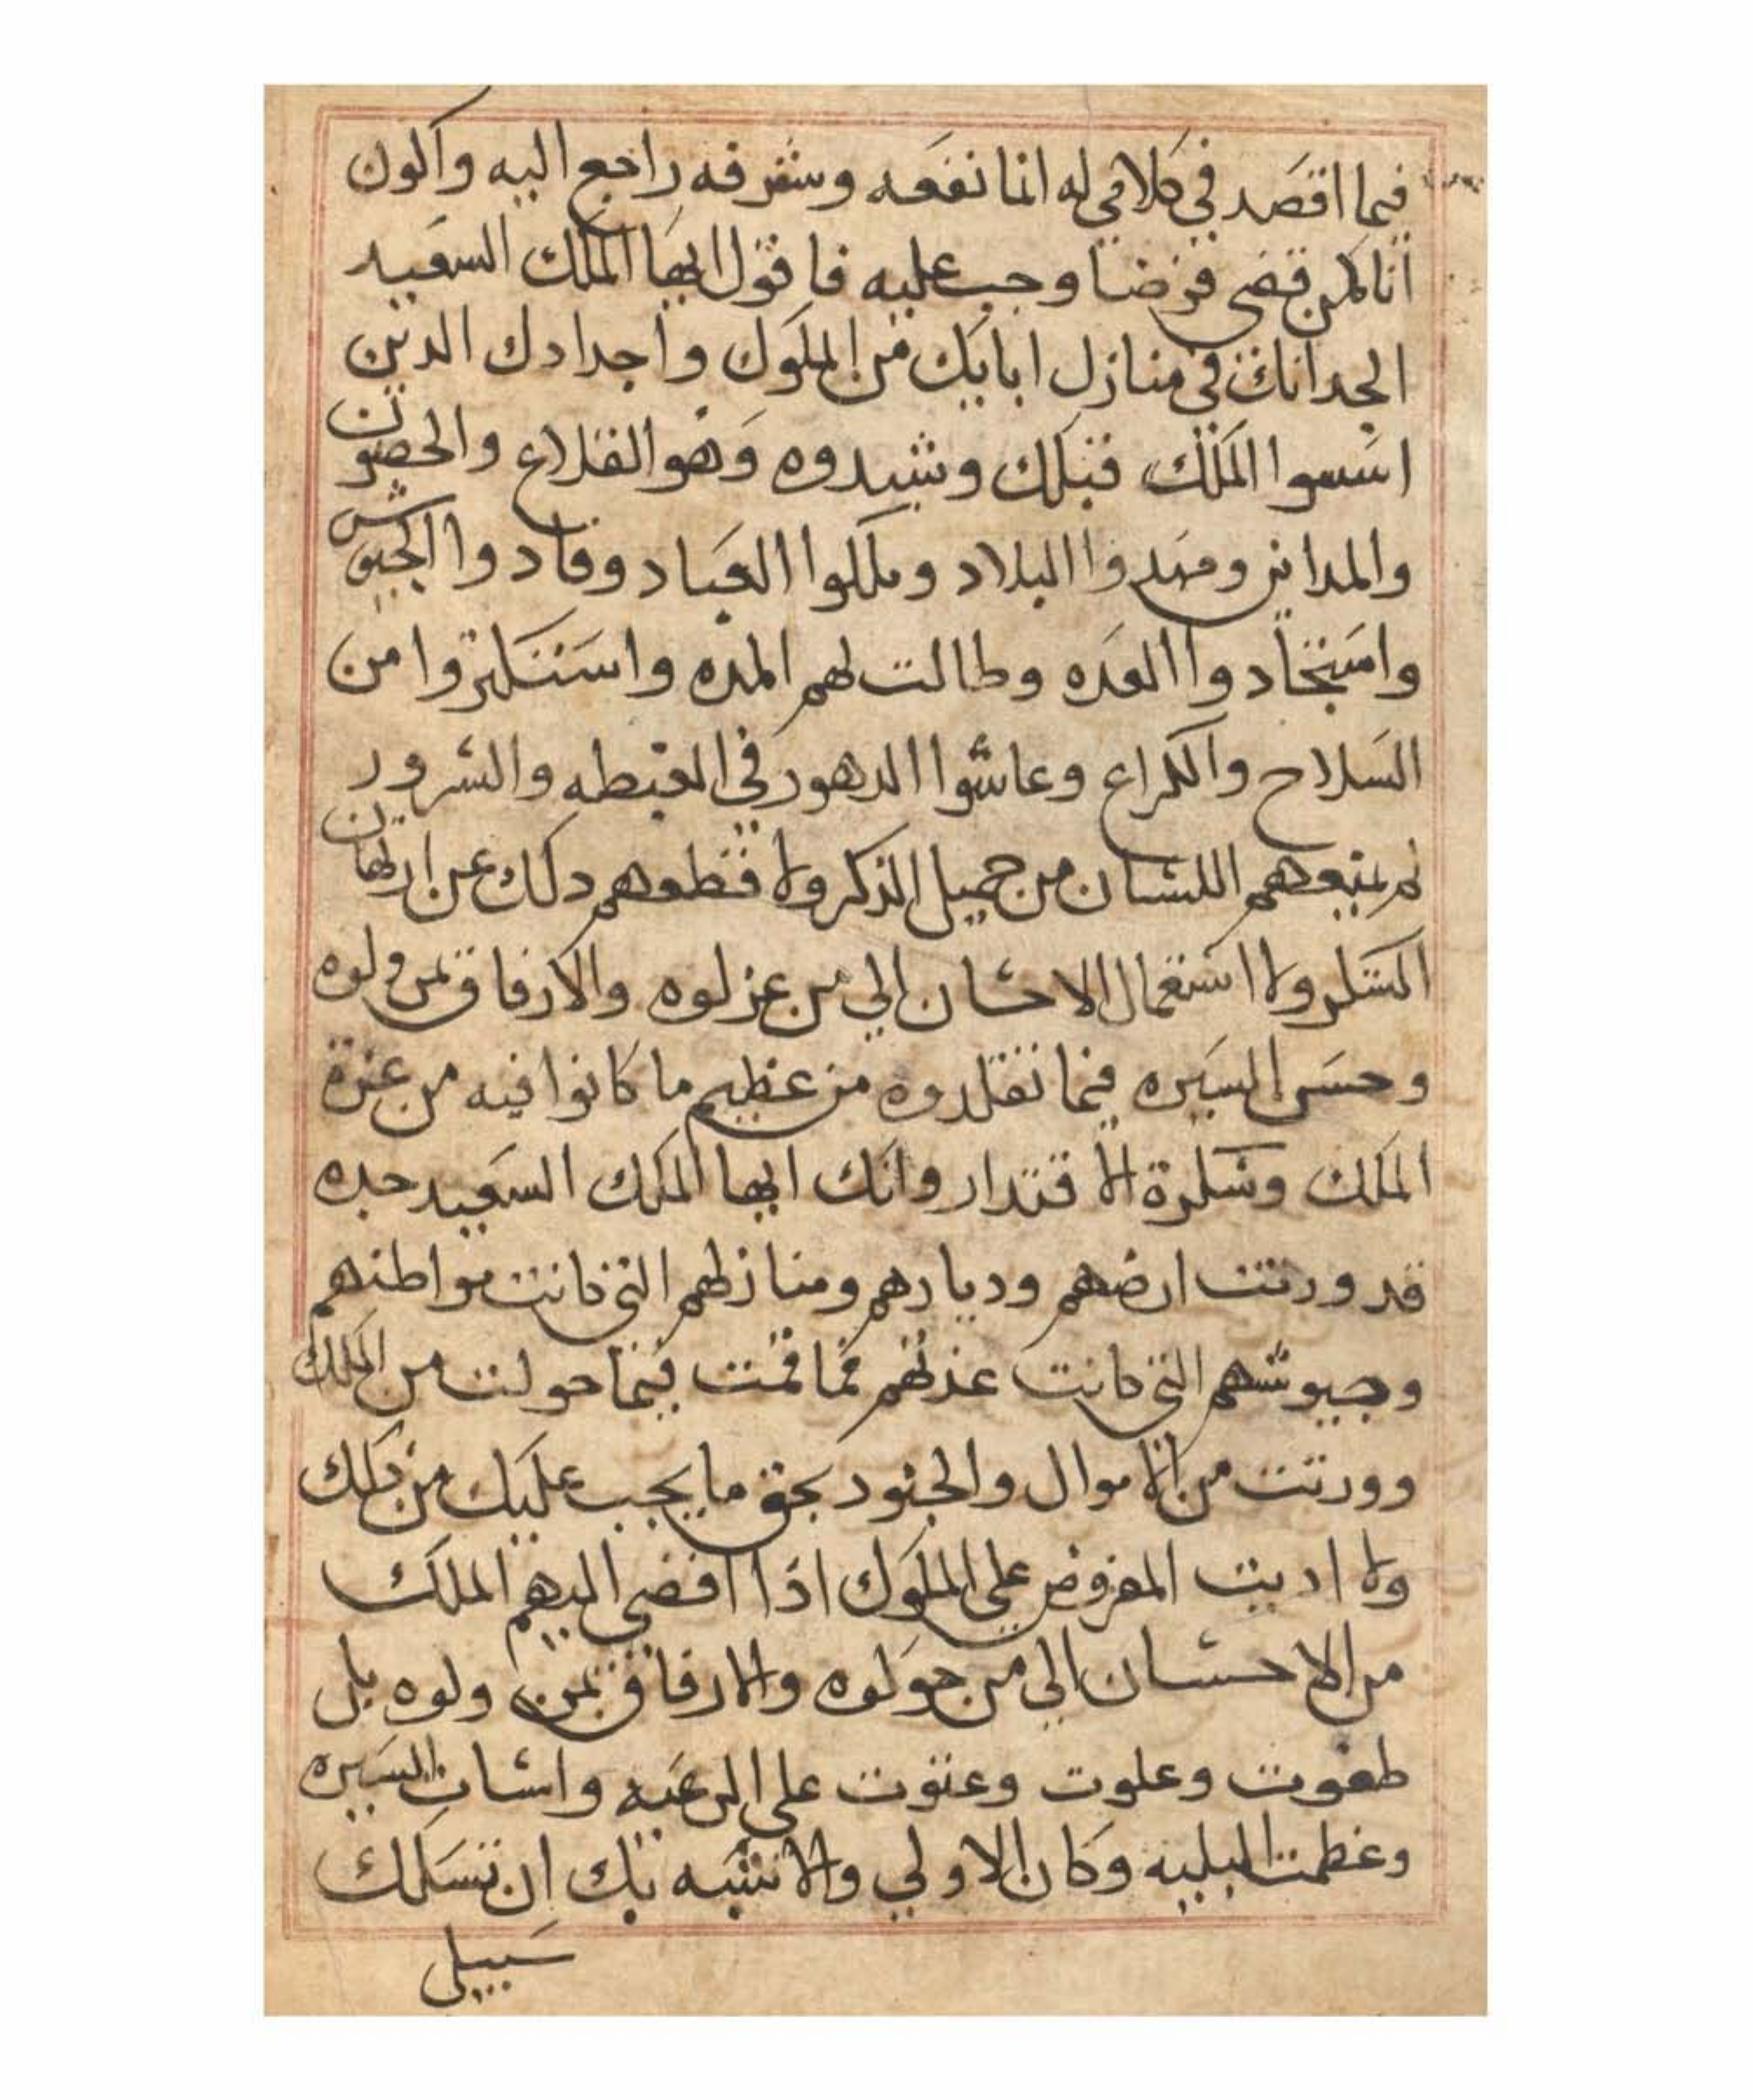 فيما اقصد في كلامي له انما نفعه وشرفه راجع اليه واكون
انا كمن قضي فرضا وجب عليه فاقول ايها الملك السعيد
الجد انك في منازل ابايك من الملوك واجدادك الدين
اسسوا الملك قبلك وشيدوه وهو القلاع والحصون
والمداين ومهدوا البلاد وملكوا العباد وقادوا الجيوش
واستجادوا العده وطالت لهم المده واستكثروا من
السلاح والكراع وعاشوا الدهور في الغبطه والسرور
لم يمنعهم اللسان من جميل الذكر ولا قطعهم دلك عن ارتهان
الشكر ولا استعمال الاحسان الي من عزلوه والارفاق بمن ولوه
وحسن السيره فيما تقلدوه من عظيم ما كانوا فيه من عزة
الملك وسكرة الاقتدار وانك ايها الملك السعيد جده
قد ورثت ارضهم وديارهم ومنازلهم التي كانت مواطنهم
وجيوشهم التي كانت عدتهم فما قمت فيما حولت من الملك
وورثت من الاموال والجنود بحق ما يجب عليك من ذلك
ولا اديت المفروض علي الملوك اذا افضي اليهم الملك
من الاحسان الي من حولوه والارفاق بمن ولوه بل
طغوت وعلوت وعتوت علي الرعيه واسات السيره
وعظمت البليه وكان الاولي والاشبه بك ان تسلك
سبيل